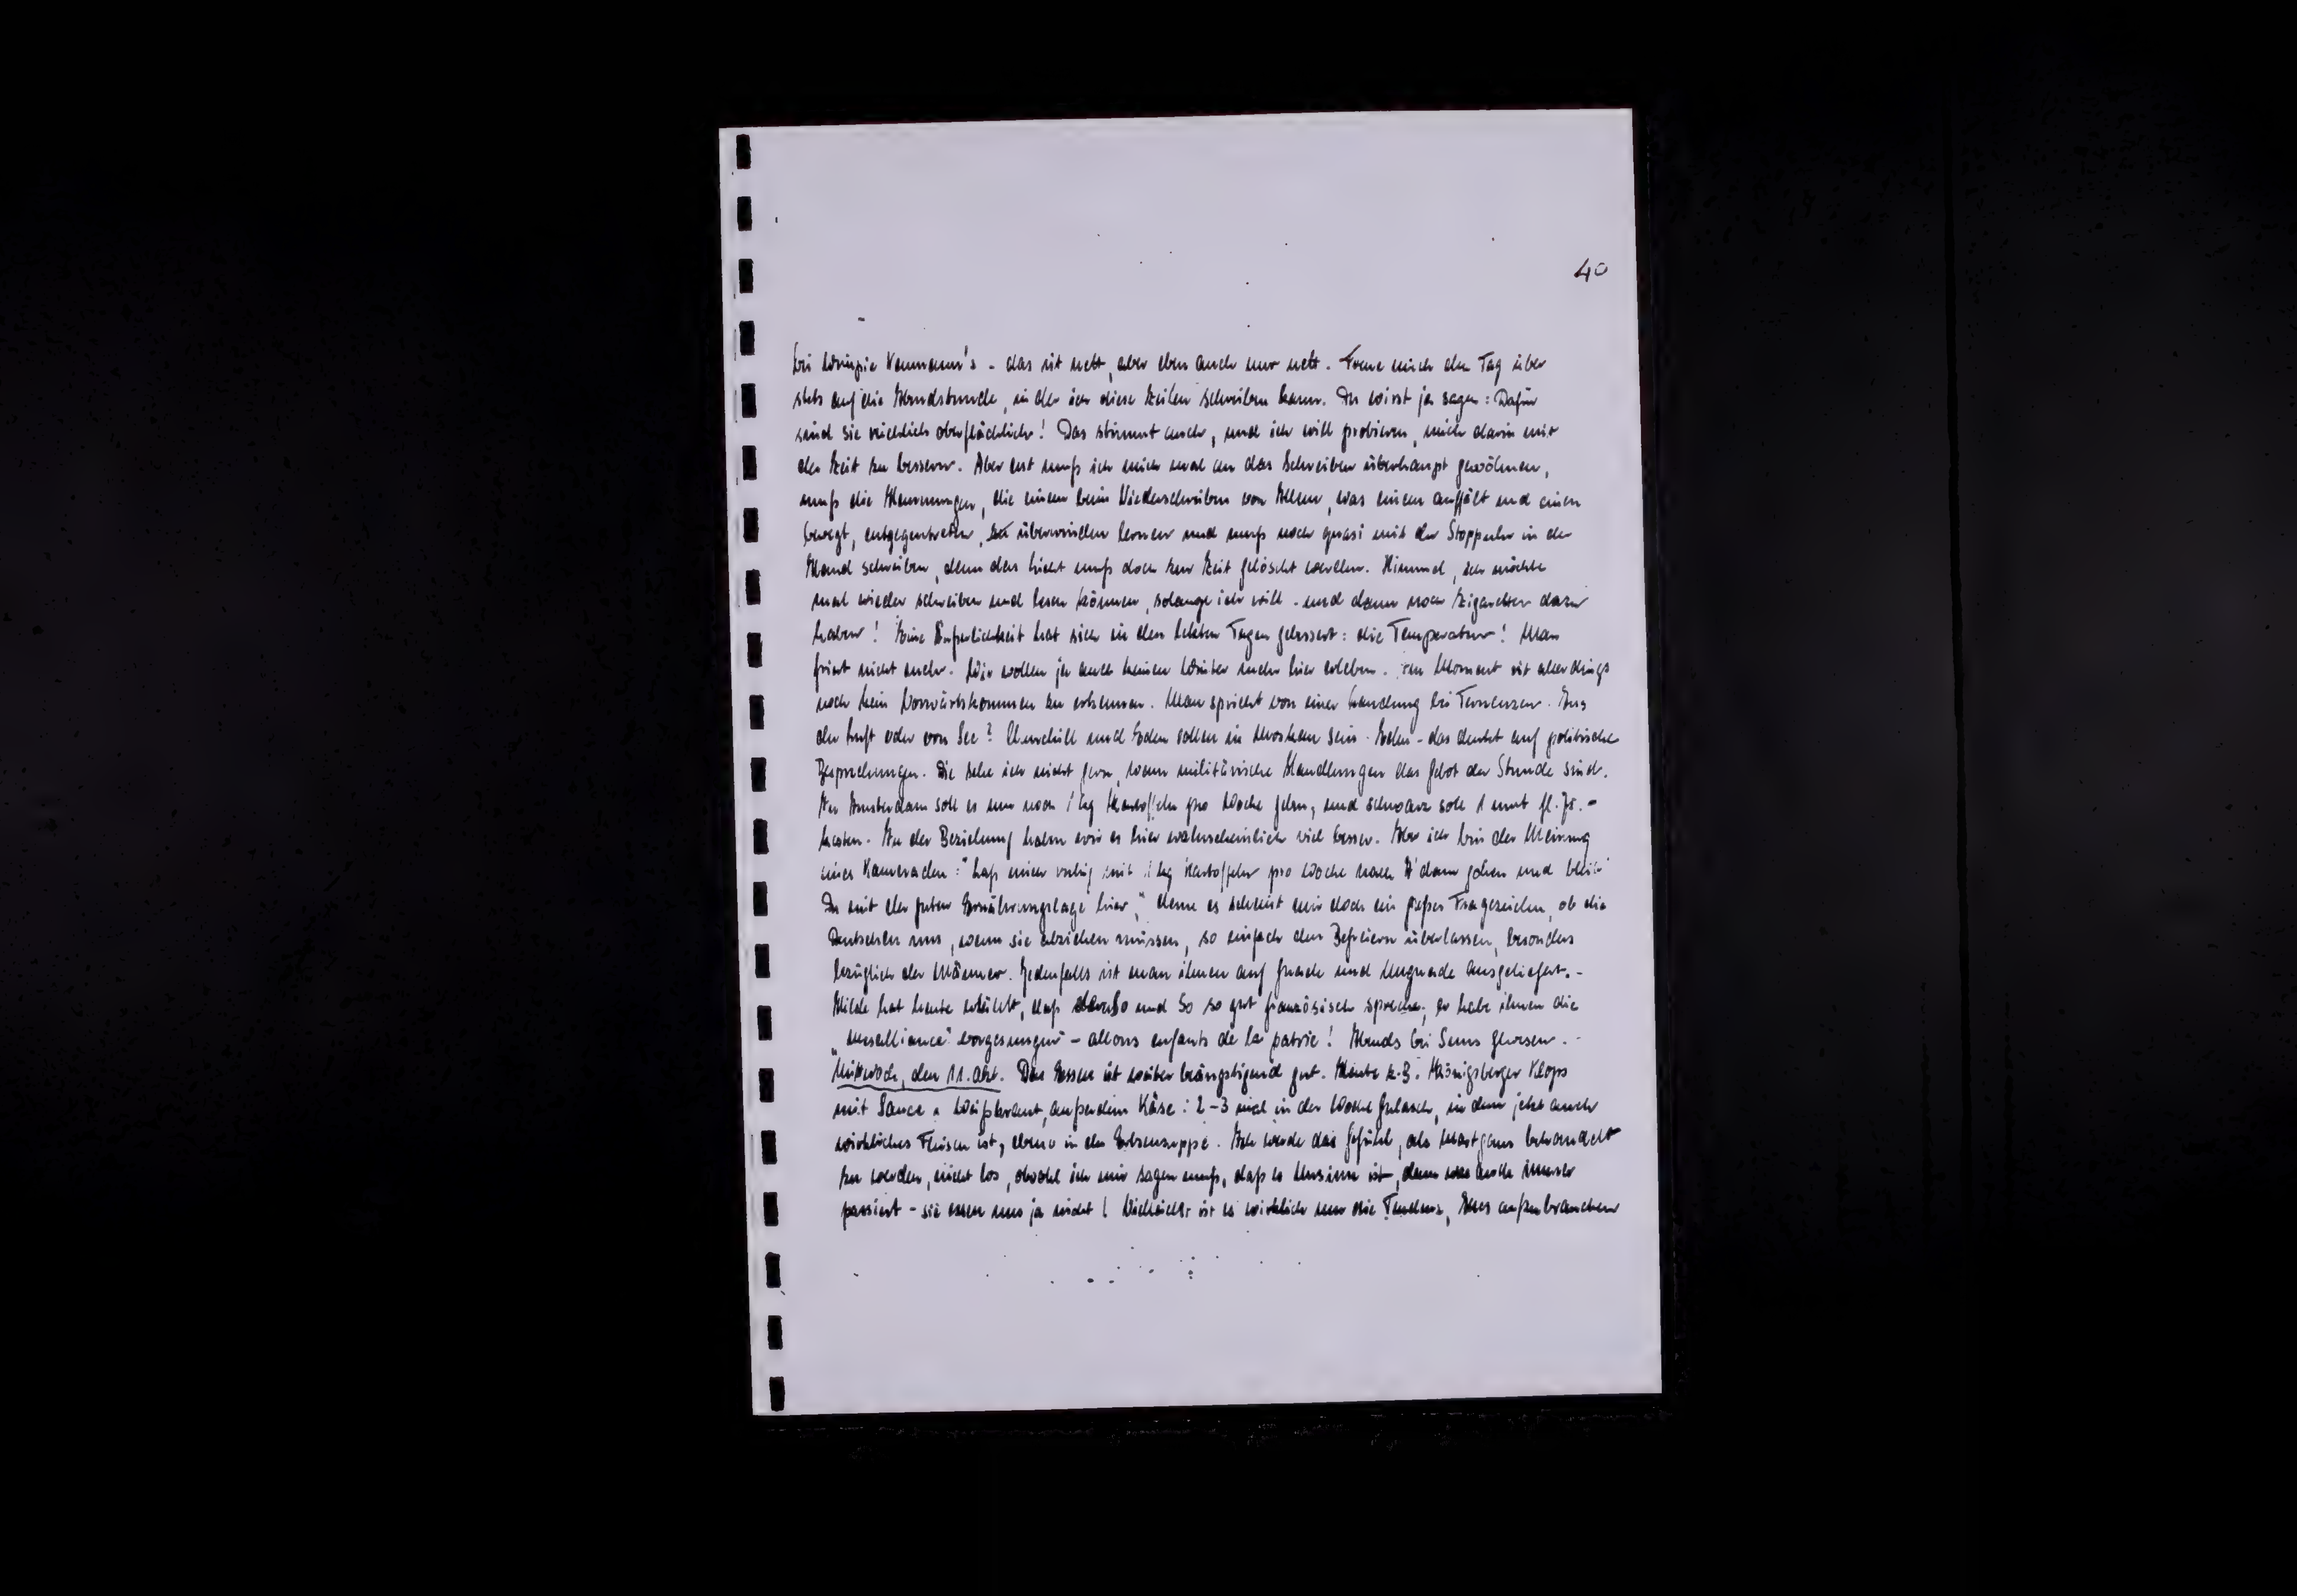 40
bei Winzie Neumann's - das ist nett, aber eben auch nur nett. Freue mich den Tag über
stets auf die Abendstunde, in der ich diese Zeilen schreiben kann. Du wirst ja sagen: Dafür
sind sie reichlich oberflächlich! Das stimmt auch, und ich will probieren, mich darin mit
der Zeit zu bessern. Aber erst muß ich mich mal an das Schreiben überhaupt gewöhnen,
muß die Hemmungen, die einem beim Niederschreiben von Allem, was einem auffällt und einen
bewegt, entgegentreten, zu überwinden lernen und muß noch quasi mit der Stoppuhr in der
Hand schreiben, denn das Licht muß doch zur Zeit gelöscht werden. Himmel, ich möchte
mal wieder schreiben und lesen können, solange ich will - und dann noch Zigaretten dazu
haben! Eine Äußerlichkeit hat sich in den letzten Tagen gebessert: die Temperatur! Man
friert nicht mehr. Wir wollen ja auch keinen Winter mehr hier erleben. Im Moment ist allerdings
noch kein Vorwärtskommen zu erkennen. Man spricht von einer Landung bei Terneuzen. Aus
der Luft oder von See? Churchill und Eden sollen in Moskau sein. Eden - das deutet auf politische
Besprechungen. Die sehe ich nicht gern, wenn militärische Handlungen das Gebot der Stunde sind.
In Amsterdam soll es nur noch 1 kg Kartoffeln pro Woche geben, und schwarz soll 1 mud fl. 75.-
kosten. In der Beziehung haben wir es hier wahrscheinlich viel besser. Aber ich bin der Meinung
eines Kameraden: "Laß mich ruhig mit 1 kg Kartoffeln pro Woche nach A'dam gehen und bleib
Du mit der guten Ernährungslage hier," denn es scheint mir doch ein großes Fragezeichen, ob die
Deutschen uns, wenn sie abziehen müssen, so einfach den Befreiern überlassen, besonders
bezüglich der Männer. Jedenfalls ist man ihnen auf Gnade und Ungnade ausgeliefert. -
Hilde hat heute erzählt, daß der So und So so gut französisch spreche, er habe ihnen die
"Mesalliance" vorgesungen - allons enfants de la patrie! Abends bei Suns gewesen. -
Mittwoch, den 11. Okt. Das Essen ist weiter beängstigend gut. Heute z.B. Königsberger Klops
mit Sauce u Weißkraut, außerdem Käse; 2-3 mal in der Woche Gulasch, in dem jetzt auch
wirkliches Fleisch ist, ebenso in der Erbsensuppe. Ich werde das Gefühl, als Mastgans behandelt
zu werden, nicht los, obwohl ich mir sagen muß, daß es Unsinn ist, denn was auch immer
passiert - sie essen uns ja nicht! Vielleicht ist es wirklich nur die Tendenz, Alles aufzubrauchen